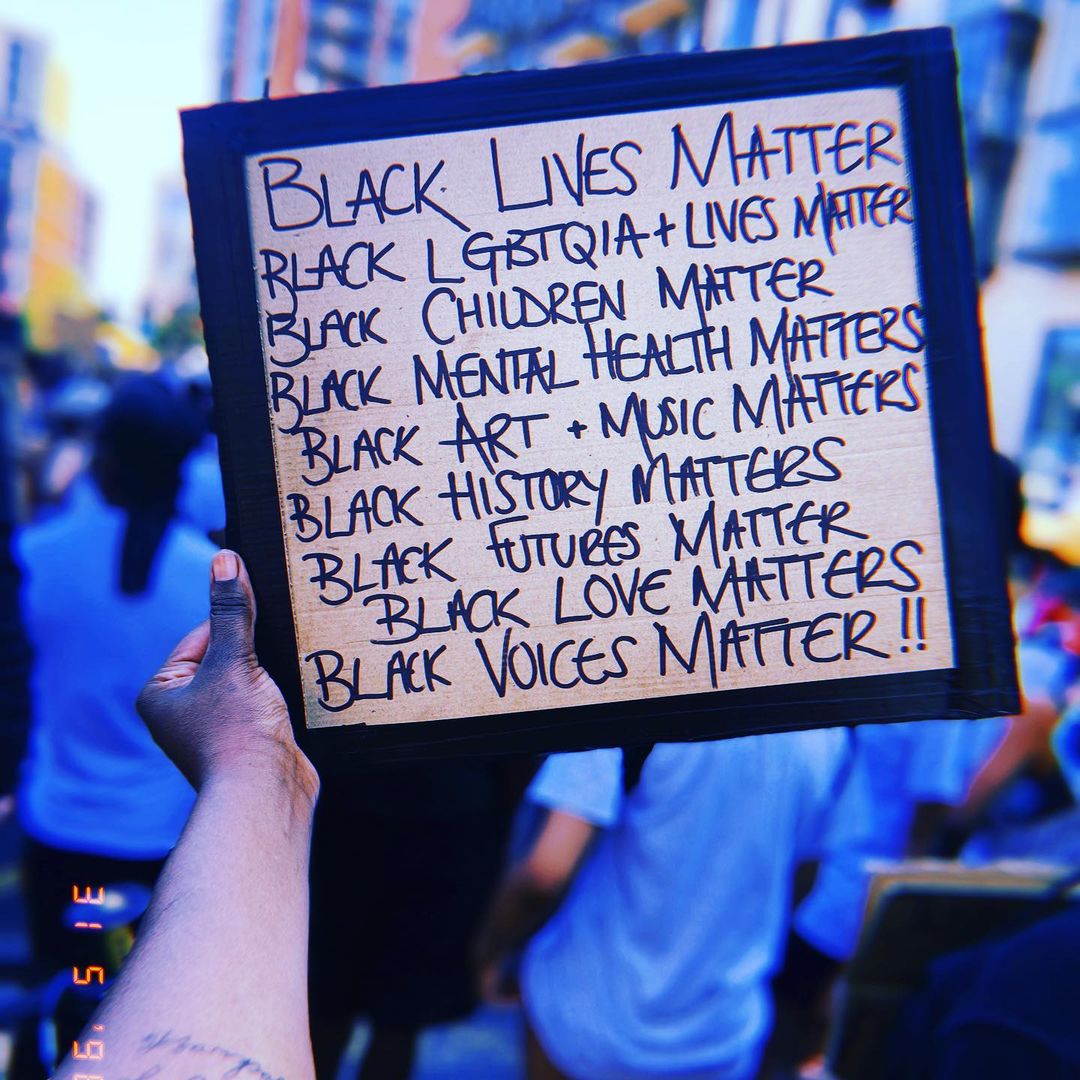 BLACK LIVES MATTER
BLACK LGBTQIA+ LIVES MATTER
BLACK CHILDREN MATTER
BLACK MENTAL HEALTH MATTERS
BLACK ART + MUSIC MATTERS
BLACK HISTORY MATTERS
BLACK FUTURES MATTER
BLACK LOVE MATTERS
BLACK VOICES MATTER!!